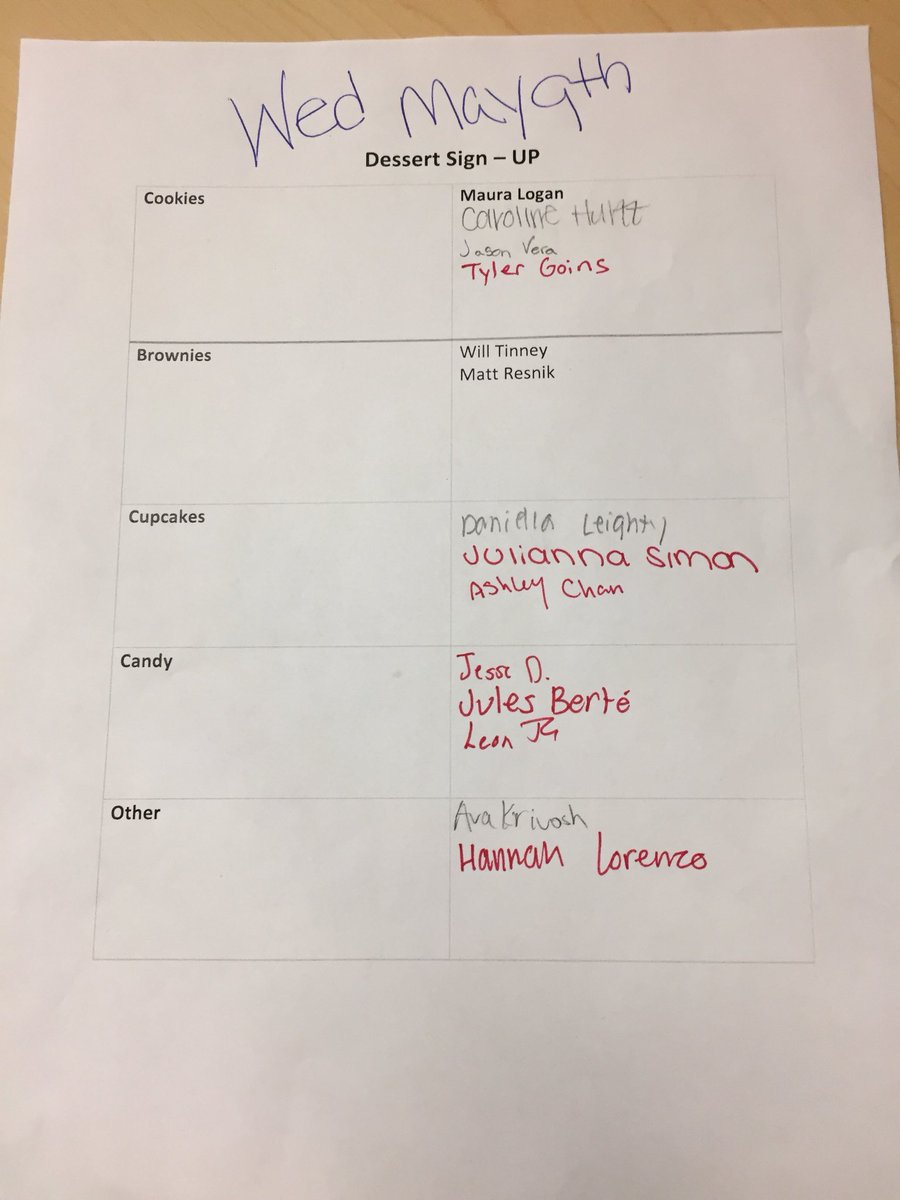 Wed May 9th
Dessert Sign – UP
Cookies
Maura Logan
Caroline Hurtt
Jason Vera
Tyler Goins
Brownies
Will Tinney
Matt Resnik
Cupcakes
Daniella Leighty
Julianna Simon
Ashley Chan
Candy
Jesse D.
Jules Berté
Leon
Other
Ava Krivosh
Hannah Lorenzo